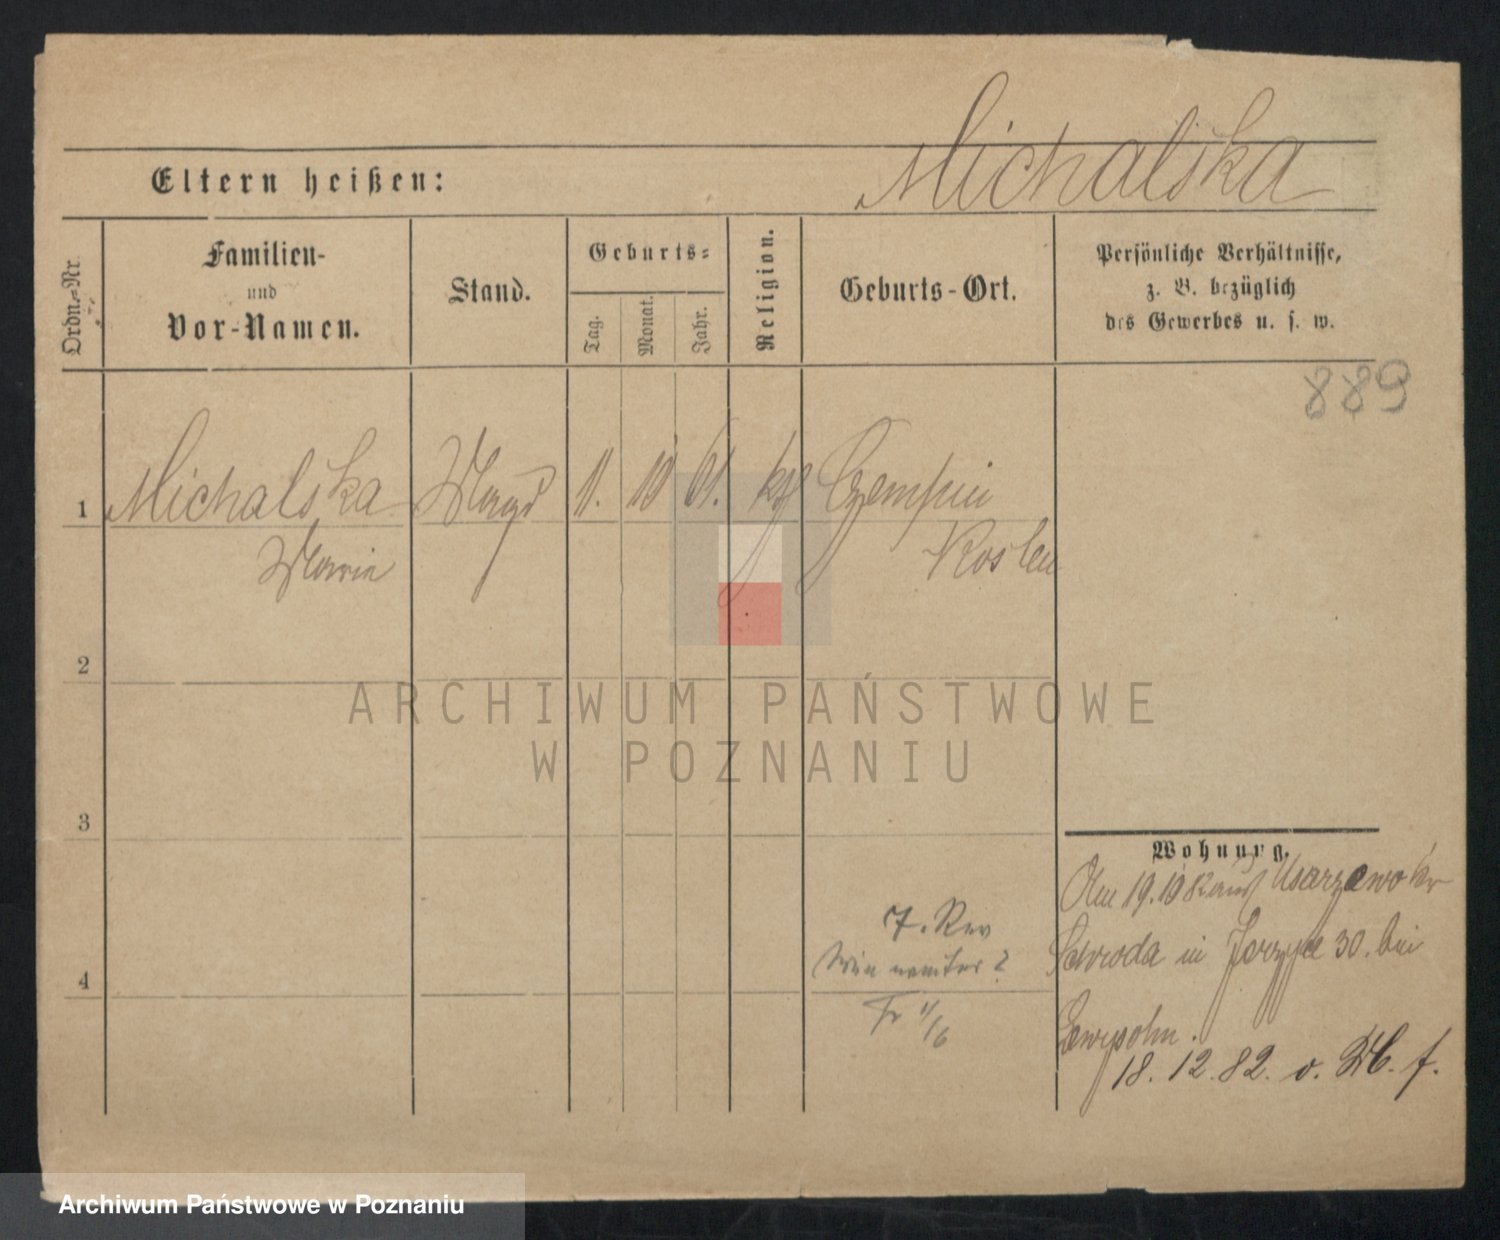 Michalska
Eltern heißen:
Ordn.-Nr.
Familien-
und
Vor-Namen.
Stand.
Geburts-
Tag.
Monat.
Jahr.
Religion.
Geburts-Ort.
Persönliche Verhältnisse,
z. B. bezüglich
des Gewerbes u. s. w.
889
1 Michalska Magd 11. 10 61. kth Czempin
Marie Kosten
2
ARCHIWUM PAŃSTWOWE
W POZNANIU
3
Wohnung.
Am 19. 10 82 aus Usarzewo Kr
Schroda in Jerzyce 30. bei
Lewysohn.
18. 12. 82. v. M. f.
7. Rev
4
Fr 4/6
Archiwum Państwowe w Poznaniu